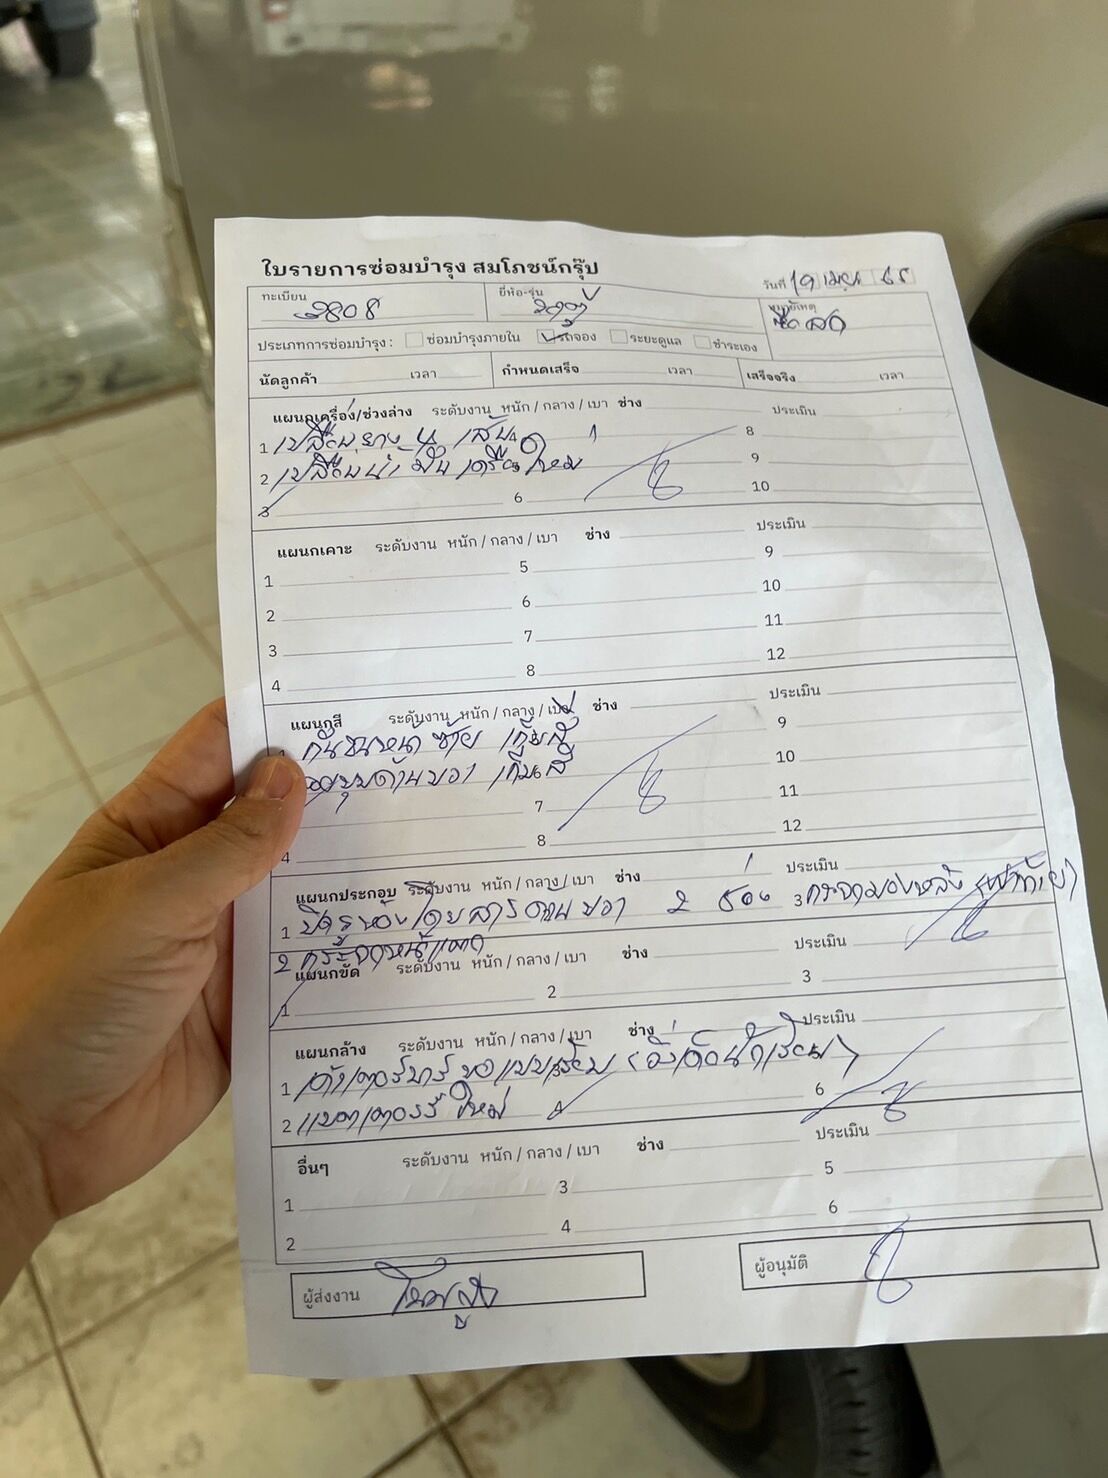 ใบรายการซ่อมบำรุง สมโภชน์กรุ๊ป
วันที่ 19 เมษ 65
ทะเบียน 2808 ยี่ห้อ-รุ่น หมายเหตุ ซื้อสด
ประเภทการซ่อมบำรุง : ซ่อมบำรุงภายใน รถจอง ระยะดูแล ชำระเอง
นัดลูกค้า เวลา กำหนดเสร็จ เวลา เสร็จจริง เวลา
แผนกเครื่อง/ช่วงล่าง ระดับงาน หนัก / กลาง / เบา ช่าง ประเมิน
1 เปลี่ยนยาง 4 เส้น 8
2 เปลี่ยนน้ำมันเครื่องใหม่ 9
3 6 10
แผนกเคาะ ระดับงาน หนัก / กลาง / เบา ช่าง ประเมิน
1 5 9
2 6 10
3 7 11
4 8 12
แผนกสี ระดับงาน หนัก / กลาง / เบา ช่าง ประเมิน
1 กันชนหน้าซ้าย เก็บสี 9
มุมด้านขวา เก็บสี 10
7 11
4 8 12
แผนกประกอบ ระดับงาน หนัก / กลาง / เบา ช่าง ประเมิน
1 ปิดรูห้องโดยสารด้านขวา 2 ช่อง 3 กระจกมองหลัง
2 กระจกหน้าแตก
แผนกขัด ระดับงาน หนัก / กลาง / เบา ช่าง ประเมิน
1 2 3
แผนกล้าง ระดับงาน หนัก / กลาง / เบา ช่าง ประเมิน
1 6
2 แบตเตอรี่ใหม่ 4
อื่นๆ ระดับงาน หนัก / กลาง / เบา ช่าง ประเมิน
1 3 5
2 4 6
ผู้ส่งงาน ผู้อนุมัติ